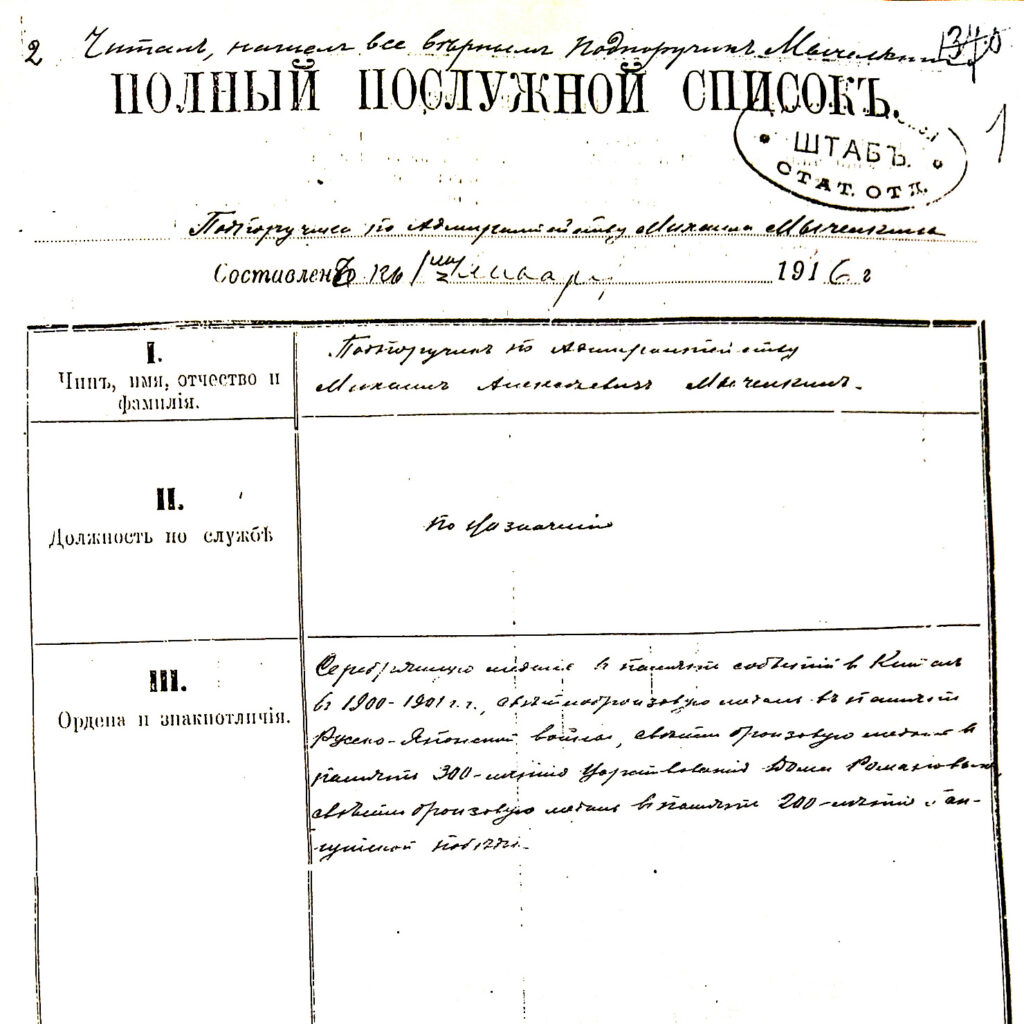 2 Читалъ, нашелъ все вѣрнымъ Подпоручикъ Мыченкинъ 1340
ПОЛНЫЙ ПОСЛУЖНОЙ СПИСОКЪ.
1
ШТАБЪ.
СТАТ. ОТД.
Подпоручика по Адмиралтейству Михаила Мыченкина
Составленъ къ 1му Января 1916 г
I.
Чинъ, имя, отчество и
фамилія.
Подпоручикъ по Адмиралтейству
Михаилъ Алексѣевичъ Мыченкинъ.
II.
Должность по службѣ
по назначенію
III.
Ордена и знакиотличія.
Серебрянную медаль в память событій в Китаѣ
въ 1900-1901 г.г., свѣтлобронзовую медаль въ память
Русско-Японской войны, свѣтло бронзовую медаль в
память 300-лѣтія Царствованія Дома Романовыхъ,
свѣтло бронзовую медаль в память 200-лѣтія Ган-
гутской побѣды.